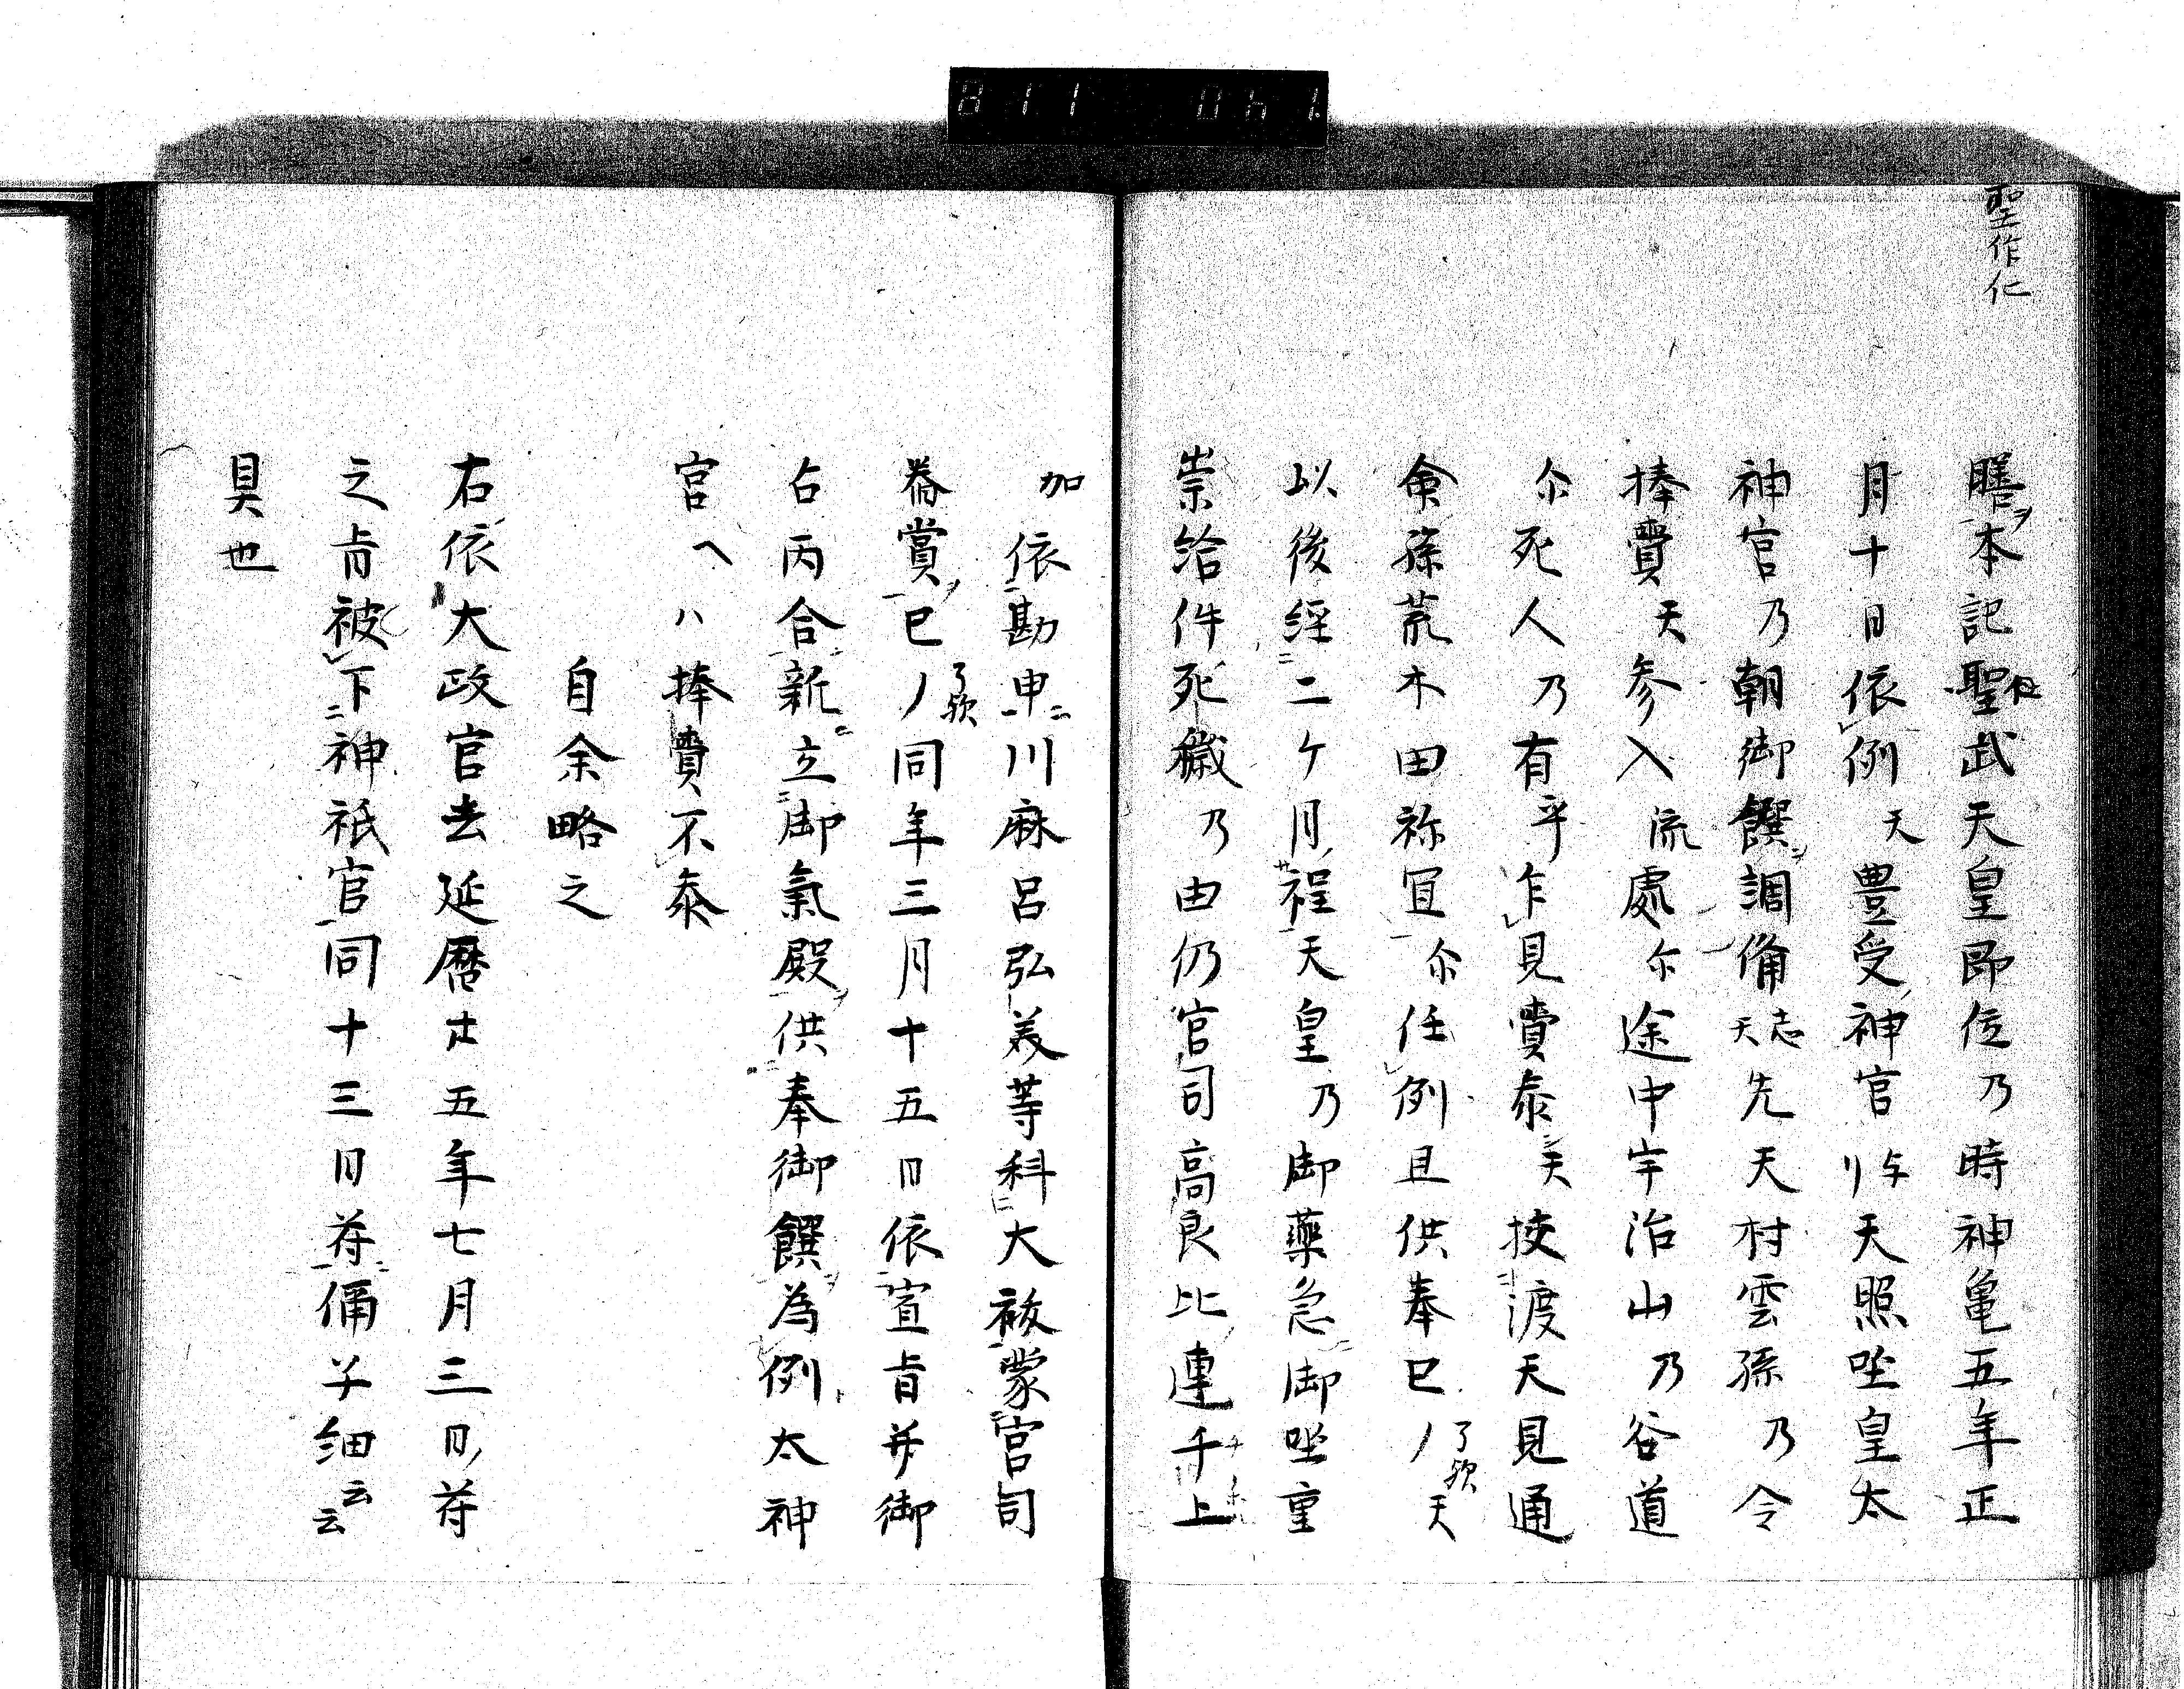 聖作仁
膳本記聖武天皇即位乃時神亀五年正
月十日依例天豊受神宮与利天照坐皇太
神宮乃朝御饌調備志天先天村雲孫乃令
捧賷天参入流處尓途中宇治山乃谷道
尓死人乃有乎乍見賷奈天挍渡天見通
會孫荒木田祢宜尓任例且供奉已了歟ノ天
以後経二ケ月程天皇乃御薬急御坐重
崇給件死穢乃由仍宮司高良比連千上
加依勘申川麻呂弘美等科大祓蒙宮司
裔賞已了歟ノ同年三月十五日依宣旨并御
占丙合新立御氣殿供奉御饌為例太神
宮へハ捧賷不泰
自余略之
右依大政官去延暦廿五年七月三日苻
之旨被下神祇官同十三日苻偁子細云云
具也